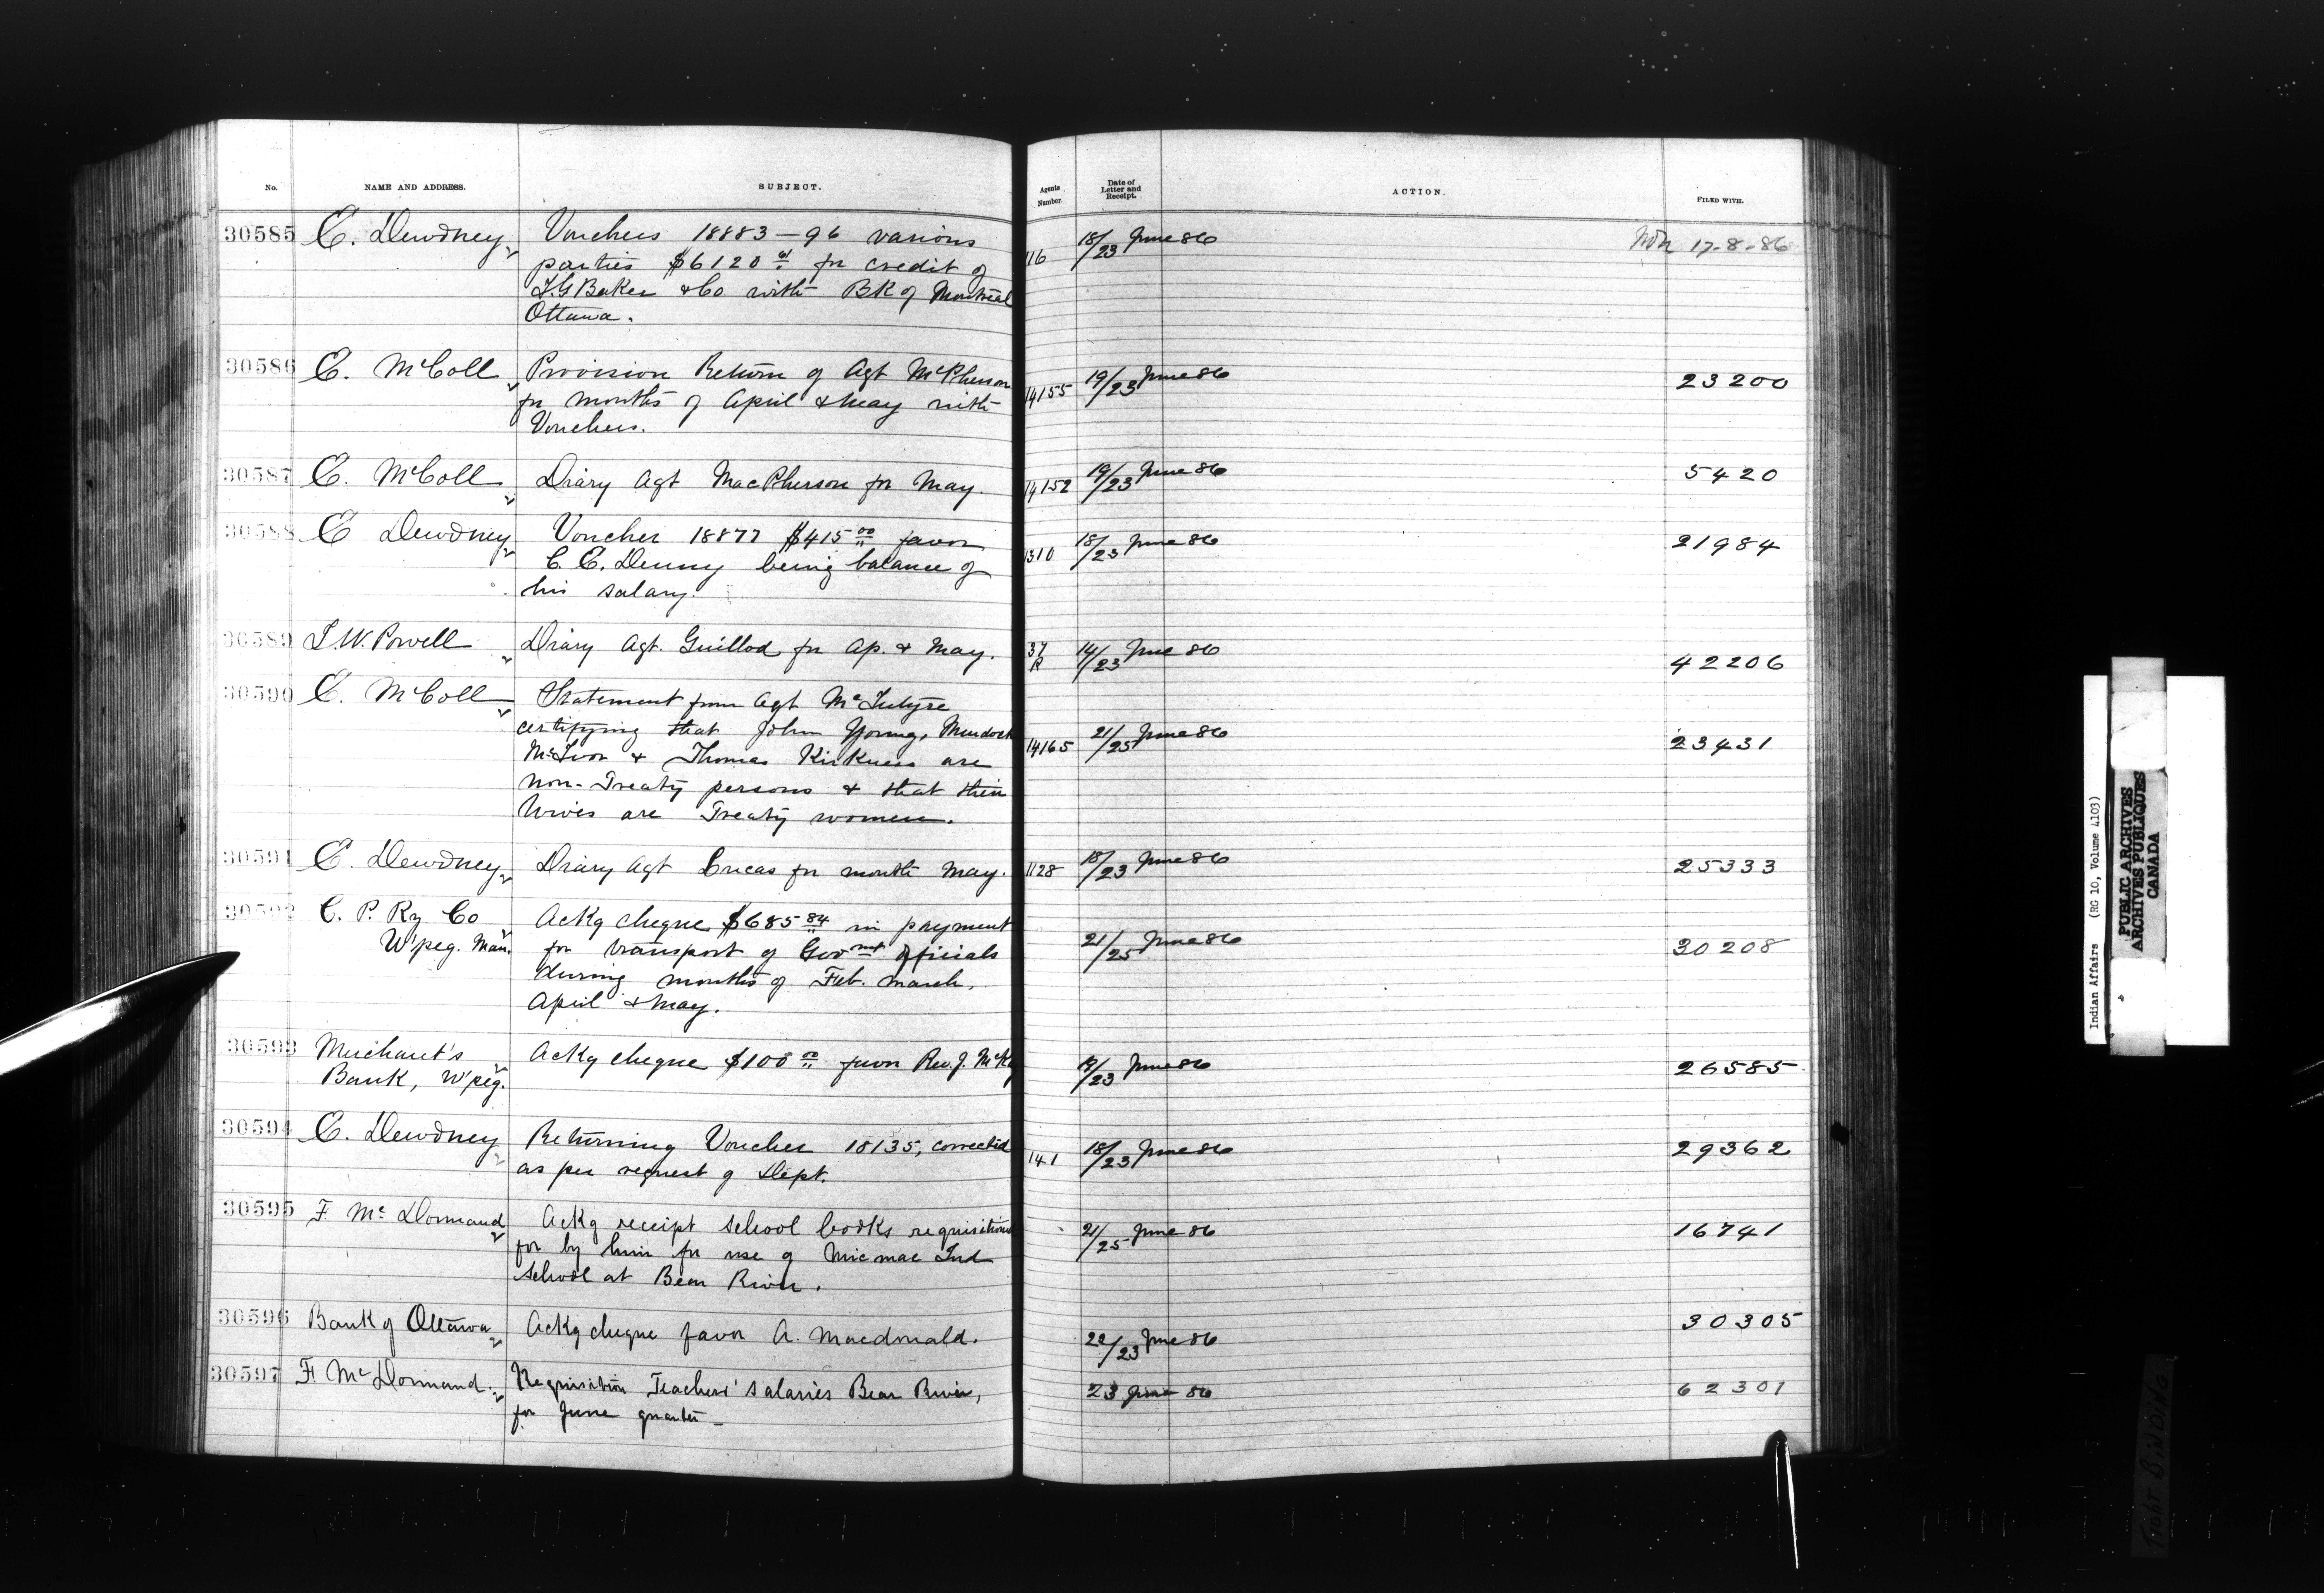 No. NAME AND ADDRESS. SUBJECT. Agents Number. Date of Letter and Receipt. ACTION. FILED WITH.
30585 E. Dewdney Vouchers 18883-96 various 116 18/23 June 86 17-8-86
parties $6120 for credit of
I.G Baker & Co with BK of Montreal
Ottawa.
30586 E. McColl Provision Return of Agt McPherson 14155 19/23 June 86 23200
for months of April & May with
Vouchers.
30587 E. McColl Diary Agt MacPherson for May. 14152 19/23 June 86 5420
30588 E Dewdney Voucher 18877 $415 00 favor 1310 18/23 June 86 21984
C. E. Denny being balance of
his salary.
30589 I.W. Powell Diary Agt. Guillod for Ap. & May. 37 R 14/23 June 86 42206
30590 E. McColl Statement from Agt McIntyre
certifying that John Young, Murdock 14165 21/25 June 86 23431
McIvor & Thomas Kirkness are
non-Treaty persons & that their
Wives are Treaty women.
30591 E. Dewdney Diary Agt Lucas for month May. 1128 18/23 June 86 25333
30592 C. P. Ry Co Ackg cheque $685 84 in payment
W'peg. Man. for transport of Govmt officials 21/25 June 86 30208
during months of Feb. March,
April & May.
30593 Merchant's Ackg cheque $100 00 favor Rev. J. McKay 19/23 June 86 26585
Bank, W'peg.
30594 E. Dewdney Returning Voucher 18135, corrected 141 18/23 June 86 29362
as per request of Dept.
30595 F. McDormand Ackg receipt school books requisitioned 21/25 June 86 16741
for by him for use of Micmac Ind
School at Bear River.
30596 Bank of Ottawa Ackg cheque favor A. Macdonald. 22/23 June 86 30305
30597 F. McDormand. Requisition Teachers' salaries Bear River, 23 June 86 62301
for June quarter-
Indian Affairs (RG 10, Volume 4103)
PUBLIC ARCHIVES
ARCHIVES PUBLIQUES
CANADA
TIGHT BINDING